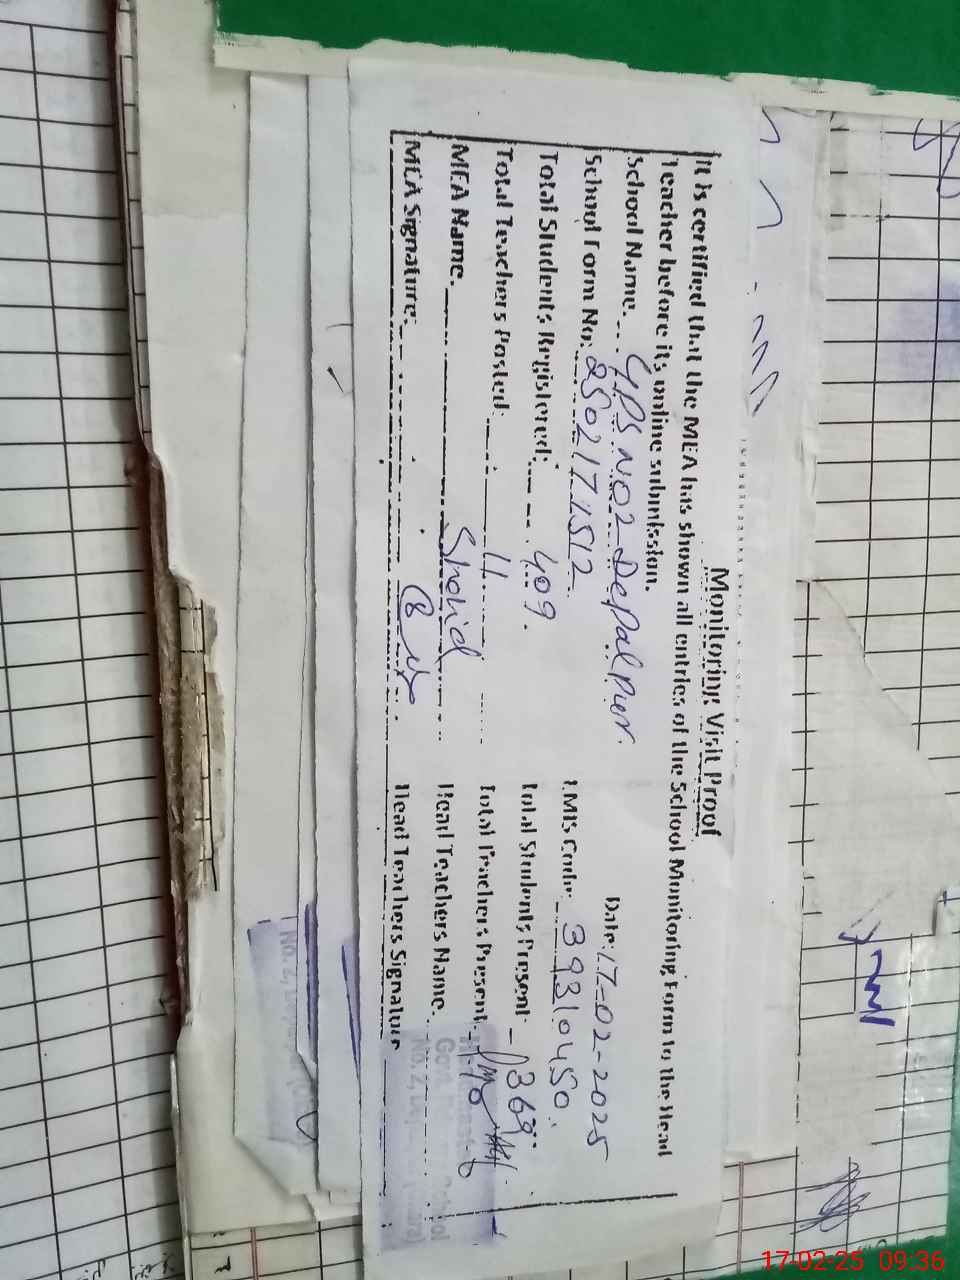 Monitoring Visit Proof
It is certified that the MEA has shown all entries of the School Monitoring Form to the Head
Teacher before its online submission.
Date: 17-02-2025
School Name. GPS NO2 Depalpur.
School Form No: 2502171512
EMIS Code: 39310450
Total Students Registered: 409.
Total Students Present: 369
Total Teachers Posted: 11
Total Teachers Present: 10
MEA Name. Shahid
Head Teachers Name.
MEA Signature:
Head Teachers Signature
No. 2,
17-02-25 09:36